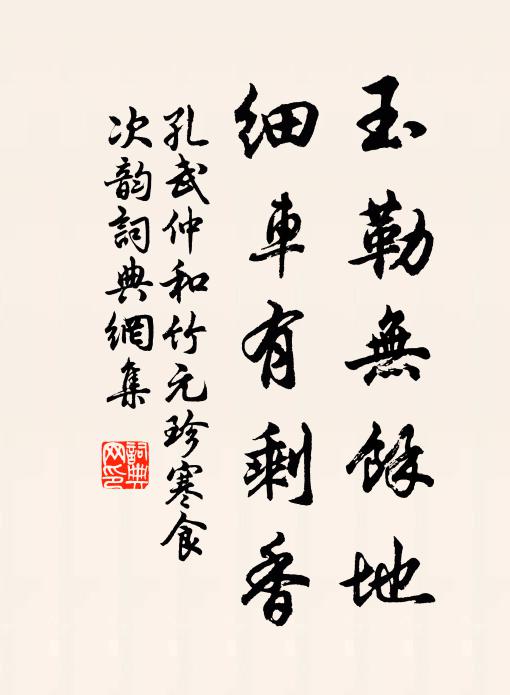 玉勒無餘地
細車有剩香
孔武仲和竹元珍寒食
次韵詞典網集
詞典網印